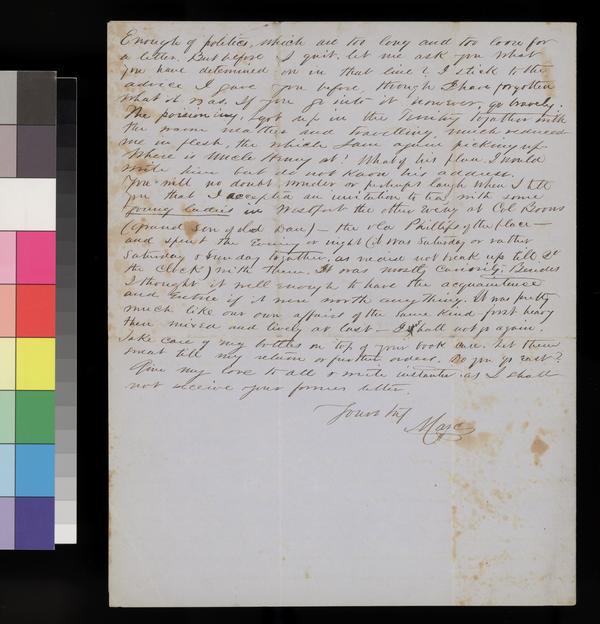 Enough of politics, which are too long and too loose for
a letter. But before I quit, let me ask you what
you have determined on in that line? I stick to the
advice I gave you before, though I have forgotten
what it was. If you go into it however, go bravely.
The poisoning, I got up in the Timber together with
the warm weather and travelling, much reduced
me in flesh, the which I am again picking up
Where is Uncle at? What of his plan. I would
write him but do not know his address.
You will no doubt wonder or perhaps laugh when I tell
you that I accepted an invitation to tea with some
young ladies in Westport the other Eve'g at Col Boons
(Grand son of old Dan) — the old of the place —
and spent the Evening or night (it was Saturday or rather
Saturday & Sunday together, as we did not break up till
the clock) with them. It was mostly Curiosity; Besides
I thought it well enough to have the acquaintance
and Entree if it were worth anything. It was pretty
much like our own affairs of the same kind first heavy
then mixed and lively at last — I shall not go again.
Take care of my bottles on top of your book case. Let them
sweat till my return or further orders. Do you go east?
Give my love to all & write instanter as I shall
not receive your former letter.
Yours
Marc